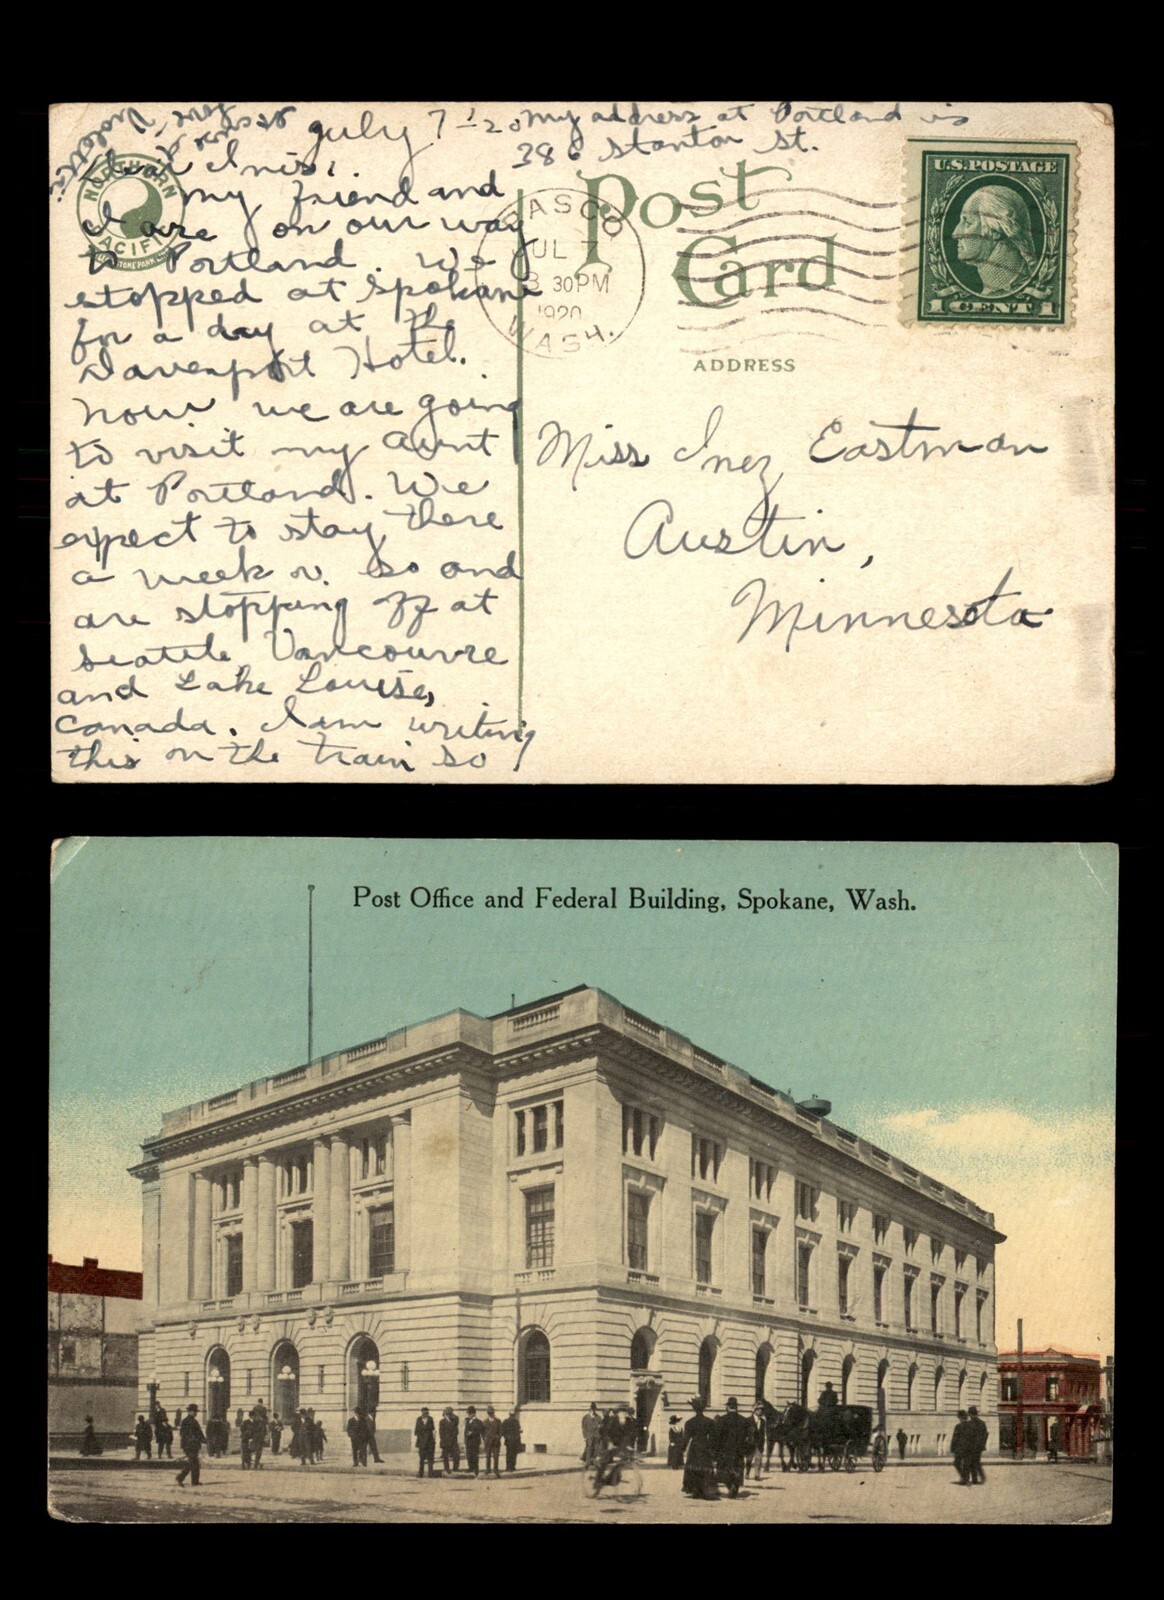 July 7 - 20
My address at Portland is
386 Stanton St.
Dear Inis,
My friend and
I are on our way
to Portland. We
stopped at Spokane
for a day at the
Davenport Hotel.
Now we are going
to visit my Aunt
at Portland. We
expect to stay there
a week or so and
are stopping off at
Seattle Vancouvre
and Lake Louise,
Canada. I am writing
this on the train so
Love
Violetta
NORTHERN
PACIFIC
Post
Card
PASCO
WASH.
JUL 7
3 30PM
1920
U.S. POSTAGE
1 CENT 1
ADDRESS
Miss Inez Eastman
Austin,
Minnesota
Post Office and Federal Building, Spokane, Wash.